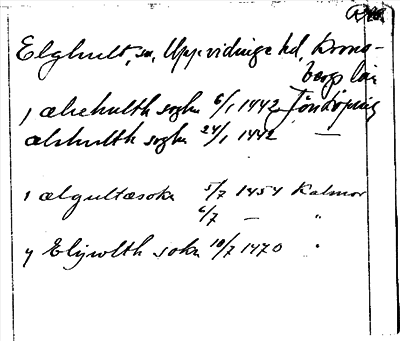 Elghult, sn, Uppvidinge hd, Krono-
bergs län
j ælæhulth soghn 6/1 1442 Jönköping
ælshulth soghn 24/1 1442 —
i ælgultæsokn 5/7 1454 Kalmar
6/7 — "
y Elijwlth sokn 10/7 1470 "